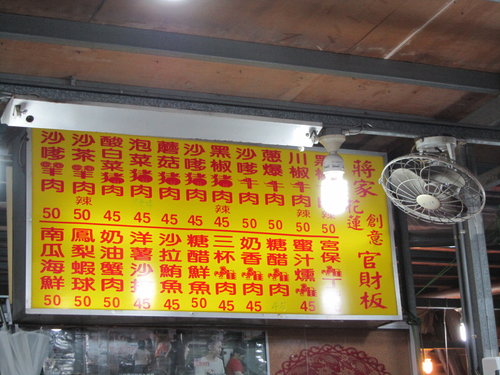 蔣家花蓮
創意
官財板
黑椒
川椒牛肉 辣 50
蔥爆牛肉 50
沙嗲牛肉 50
黑椒豬肉 辣 45
沙嗲豬肉 45
蘑菇豬肉 45
泡菜豬肉 45
酸白菜豬肉 45
沙茶羊肉 辣 50
沙嗲羊肉 50
宮保雞丁
蜜汁燻雞
糖醋雞肉 45
奶香雞肉 45
三杯雞肉 45
糖醋鮮魚 50
沙拉鮪魚 45
洋薯沙
奶油蟹肉 50
鳳梨蝦球 50
南瓜海鮮 50